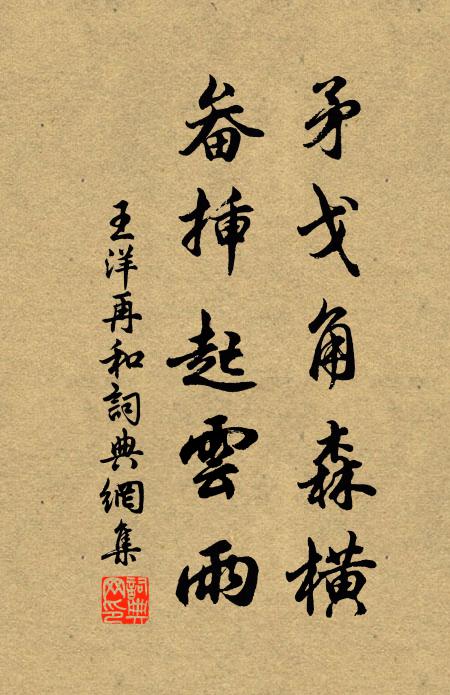 矛戈角森橫
畚挿起雲雨
王洋再和詞典網集
詞典网印